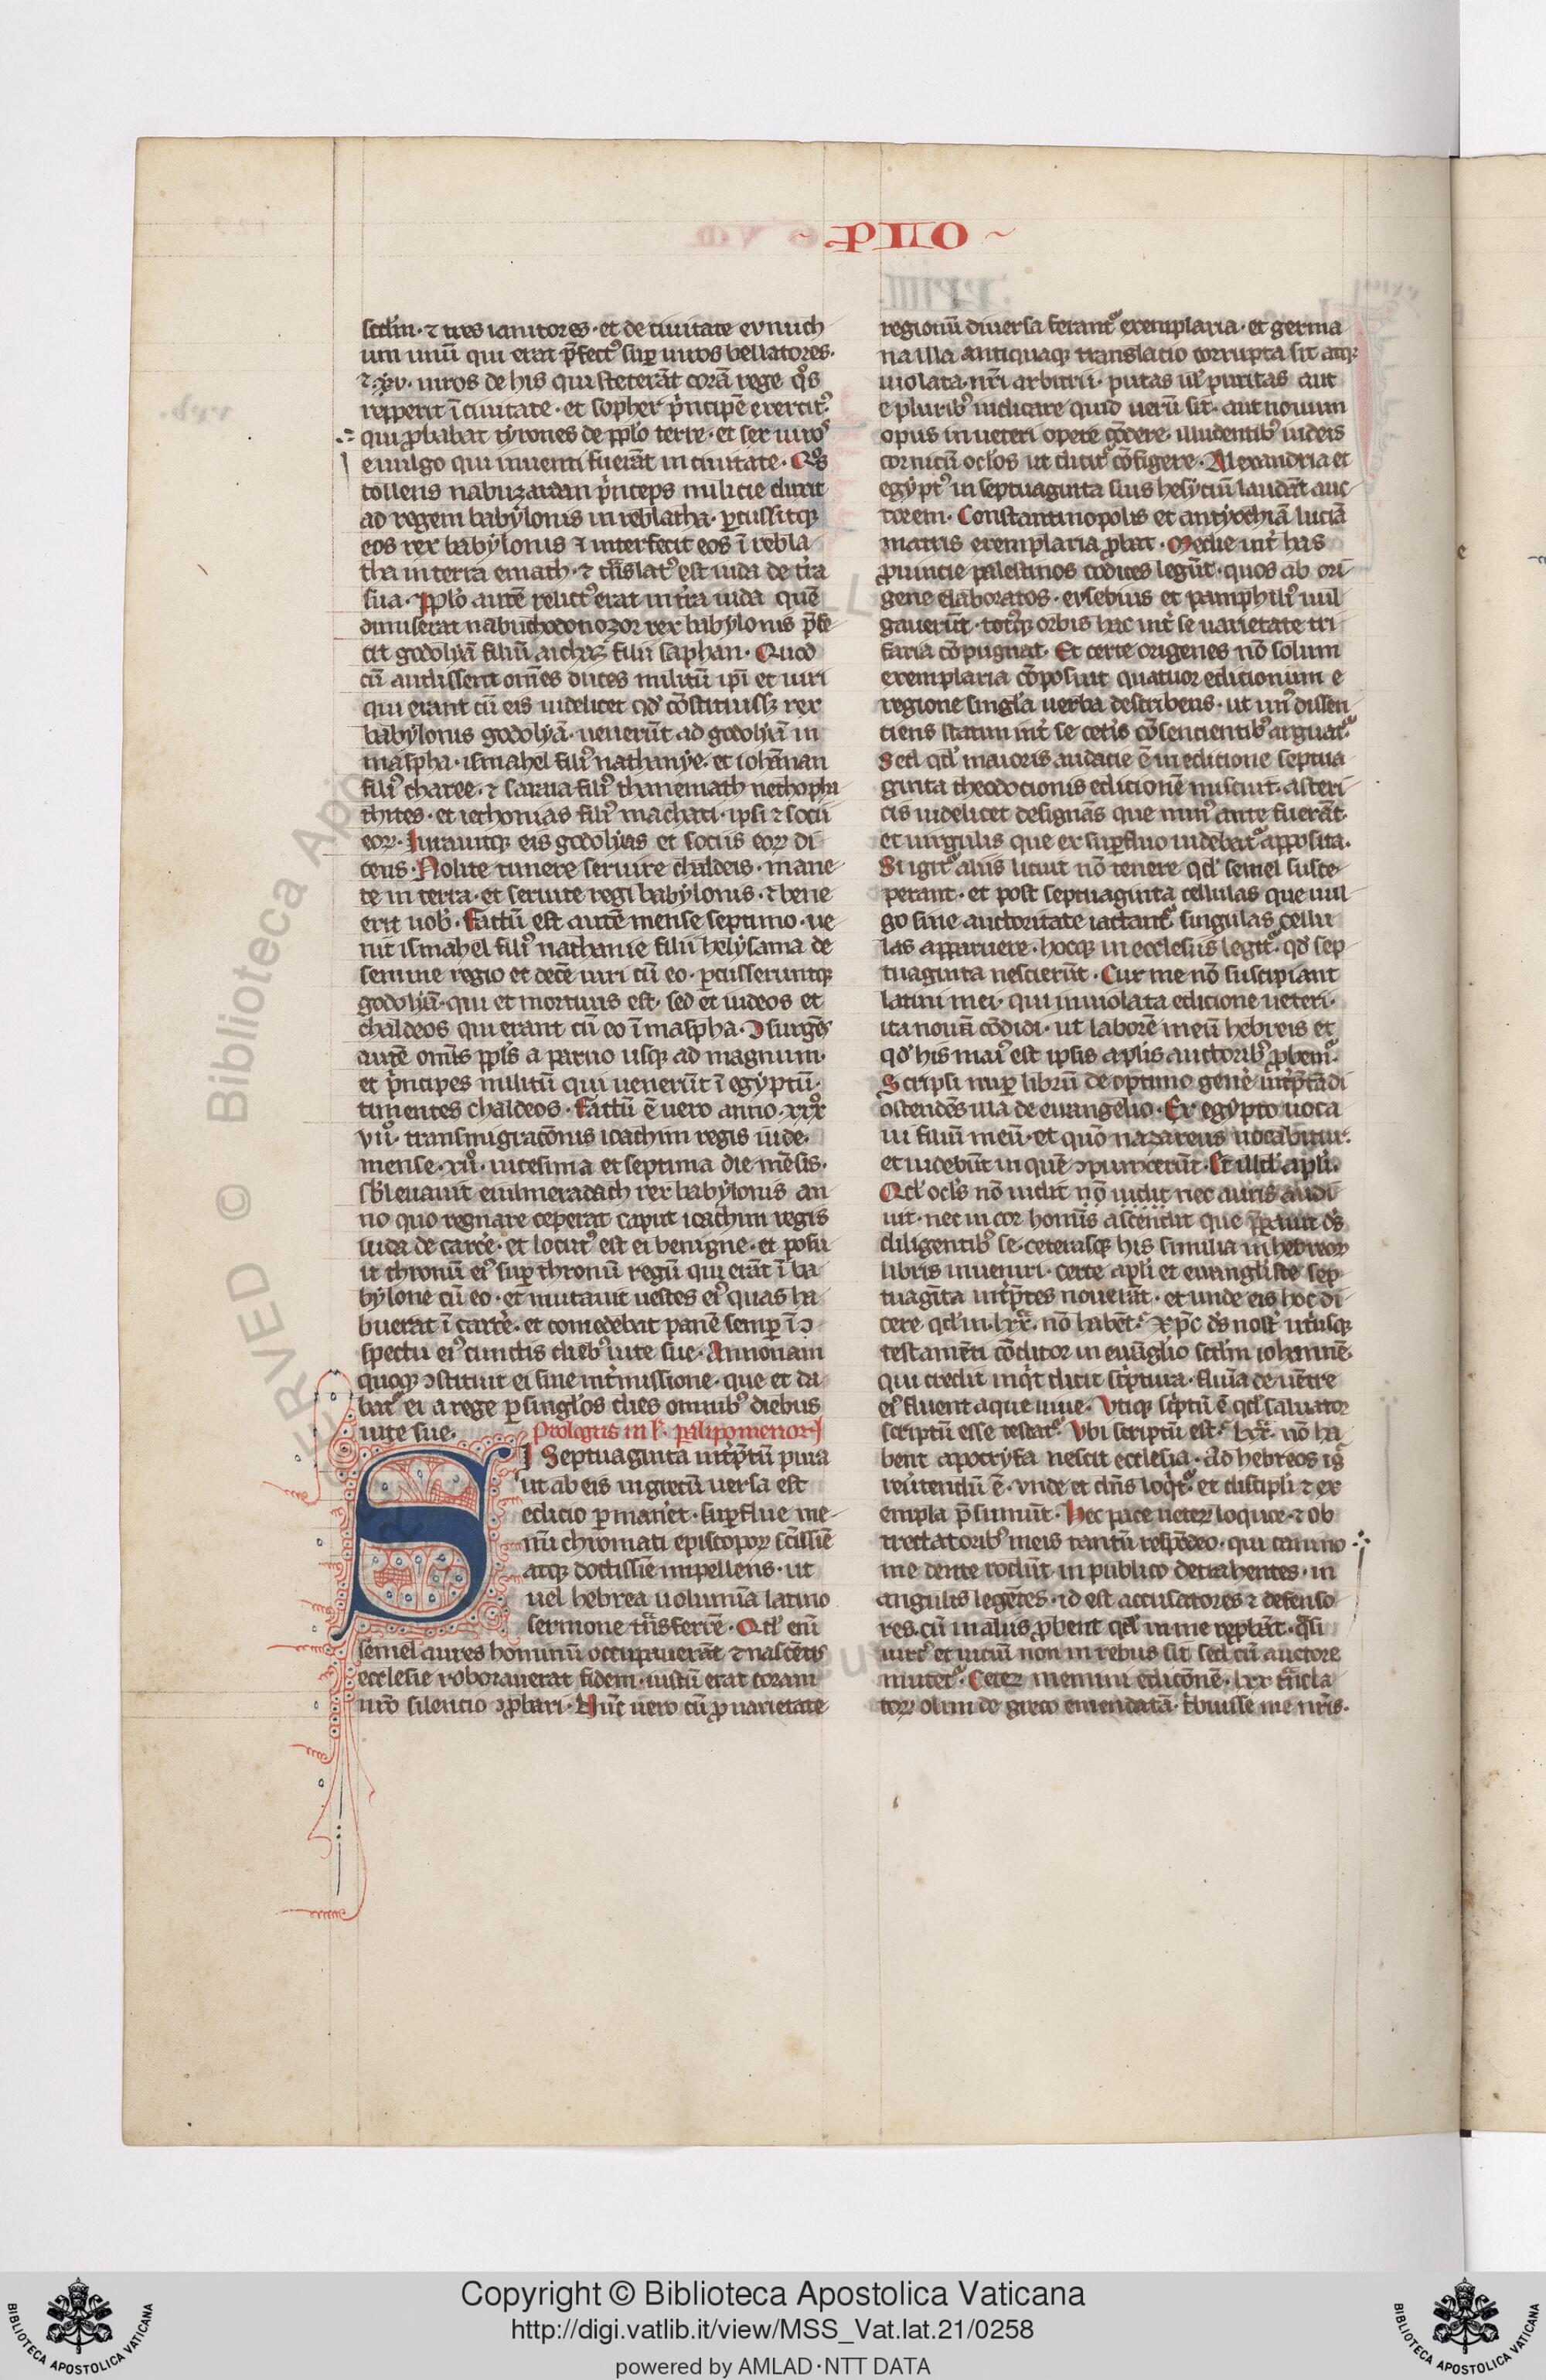 ~ PLLO ~
scd̄m · ⁊ tres ianitores · et de ciuitate eunuch
um unū qui erat p̄fectꝰ suꝑ uiros bellatores ·
⁊ · xv · uiros de his qui steterāt corā rege qͦs
repperit ī ciuitate · et sopher p̉ncipē exercitꝰ
qui ꝓbabat tyrones de pp̄lo terre · et sex uiros
e uulgo qui inuenti fuerāt in ciuitate · Qͦs
tollens nabuzardan p̉nceps milicie duxit
ad regem babylonis in reblatha · ꝑcussitqꝫ
eos rex babylonis ⁊ interfecit eos ī rebla
tha in terra emath · ⁊ tn̄slatꝰ est iuda de t̉ra
sua · Pp̄lo autē relictꝰ erat in t̉ra iuda quē
dimiserat nabuchodonozor rex babylonis p̄fe
cit godolyā filiū aichaꝫ filii saphan · Quod
cū audissent om̄es duces militū ip̄i et uiri
qui erant cū eis uidelicet qd̓ cōstituissꝫ rex
babylonis godolyā · uenerūt ad godolyā in
maspha · ismahel filiꝰ nathanye · et iohānan
filiꝰ charee · ⁊ saraia filiꝰ thanemath nethopha
thites · et iechonias filiꝰ machati · ipsi ⁊ socii
eoꝝ · Iurauitqꝫ eis godolyas et sociis eoꝝ di
cens · Nolite timere seruire chaldeis · mane
te in terra · et seruite regi babylonis · ⁊ bene
erit uob̓ · Factū est autē mense septimo · ue
nit ismahel filiꝰ nathanie filii helysama de
semine regio et decē uiri cū eo · ꝑcusseruntqꝫ
godolyā · qui et mortuus est · sed et iudeos et
chaldeos qui erant cū eo ī maspha · Ↄsurgēs
autē om̄is pp̄ls a paruo usqꝫ ad magnum ·
et p̉ncipes militū qui uenerūt ī egyptū ·
timentes chaldeos · Factū ē uero anno · xxxͦ
vııͦ · transmigracōnis ioachim regis iude ·
mense · xııͦ · uicesima et septima die mēsis ·
sb̓leuauit euilmeradach rex babylonis an
no quo regnare ceperat caput ioachim regis
iuda de carc̉e · et locutꝰ est ei benigne · et posu
it thronū eiꝰ suꝑ thronū regū qui erāt ī ba
bylone cū eo · et mutauit uestes eiꝰ quas ha
buerat ī carc̉e · et comedebat panē semꝑ ī ↄ
spectu eiꝰ cunctis diebꝰ uite sue · Annonam
quoqꝫ ↄstituit ei sine int̉missione · que et da
bat᷑ ei a rege ꝑ singl̓os dies omnibꝰ diebus
uite sue · Prologus in l̓ · paralipomenon
SI Septuaginta int̉p̄tū pura
ut ab eis in grecū uersa est
edicio ꝑmaneret · suꝑflue me
mi chromati episcopoꝝ sc̄issīe
atqꝫ doctissīe impelleris · ut
uel hebrea uolumīa latino
sermone tn̄sferrē · Qd̓ enī
semel aures hominū occupauerat ⁊ nascētis
ecclesie roborauerat fidem · iustū erat coram
nr̄o silencio ↄꝓbari · Nūc uero cū ꝓ uarietate
regionū diuersa ferant᷑ exemplaria · et germa
na illa antiquaqꝫ translacio corrupta sit atqꝫ
uiolata · nr̄i arbitrii · putas ul̓ puritas aut
e pluribꝰ iudicare quid uerū sit · aut nouum
opus in ueteri opere cōdere · illudentibꝰ iudeis
cornicū oclōs ut dicit᷑ cōfigere · Alexandria et
egyptꝰ in septuaginta suis hesyciū laudāt auc
torem · Constantinopolis et antyochiā luciā
martiris exemplaria ꝓbat · Medie int̉ has
ꝓuincie palestinos codices legūt · quos ab ori
gene elaboratos · eusebius et pamphilꝰ uul
gauerūt · totꝰqꝫ orbis hac int̉ se uarietate tri
faria cōpugnat · Et certe origenes nō solum
exemplaria cōposuit quatuor edicionum e
regione singl̓a uerba describens · ut unꝰ dissen
ciens statim int̉ se cet̉is cōsencientibꝰ arguat᷑ ·
Sed qd̓ maioris audacie ē in edicione septua
ginta theodocionis edicionē miscuit · asteri
cis uidelicet designās que minꝰ ante fuerāt
et uirgulis que ex suꝑfluo uidebāt᷑ apposita ·
Si igit᷑ aliis licuit nō tenere qd̓ semel susce
perant · et post septuaginta cellulas que uul
go sine auctoritate iactant᷑ singulas cellu
las aperuere · hocqꝫ in ecclesiis legit᷑ · qd̓ sep
tuaginta nescierūt · Cur me nō suscipiant
latini mei · qui inuiolata edicione ueteri ·
ita nouā cōdidi · ut laborē meū hebreis et
qd̓ his maiꝰ est ipsis apl̄is auctoribꝰ ꝓbem᷑ ·
Scripsi nuꝑ librū de optimo gen̉e int̉p̄tādi
ostendēs illa de euangelio · Ex egypto uoca
ui filiū meū · et quō nazareus uocabitur ·
et uidebūt in quē ↄpunxerūt · Et illd̓ apl̄i ·
Qd̓ ocl̄s nō uidit nō uidit nec auris audi
uit · nec in cor homīs ascendit que p̄parauit ds̄
diligentibꝰ se · ceteraqꝫ his similia in hebreoꝝ
libris inueniri · certe apl̄i et euanglīste sep
tuagīta int̉p̄tes nouerāt · et unde eis hoc di
cere qd̓ in · lxx̄ · nō habēt · Xp̄c ds̄ nost̉ ut̉usqꝫ
testamēti cōditor in euu̅glio scd̄m iohannē ·
qui credit inq̉t dicit sc̉ptura · flumīa de uētre
eiꝰ fluent aque uiue · Utiqꝫ sc̉ptū ē qd̓ saluator
scriptū esse testat᷑ · Ubi scriptū est · lxx̄ · nō ha
bent apocryfa nescit ecclesia · Ad hebreos ig̉
reu̓tendū ē · unde et dn̄s loq̉t᷑ · et discipl̄i ⁊ ex
empla p̄sumūt · Hec pace ueteꝝ loquor · ⁊ ob
trectatoribꝰ meis tantū respōdeo · qui canino
me dente rodūt · in publico detrahentes · in
angulis legētes · id est accusatores ⁊ defenso
res · cū in aliis ꝓbent qd̓ in me reꝓbāt · qͣsi
uirtꝰ et uiciū non in rebus sit · sed cū auctore
mutet᷑ · Ceteꝝ memini edicōnē · lxx tn̄sla
toꝝ olim de greco emendatā · t̉buisse me nr̄is ·
Copyright © Biblioteca Apostolica Vaticana
http://digi.vatlib.it/view/MSS_Vat.lat.21/0258
powered by AMLAD·NTT DATA